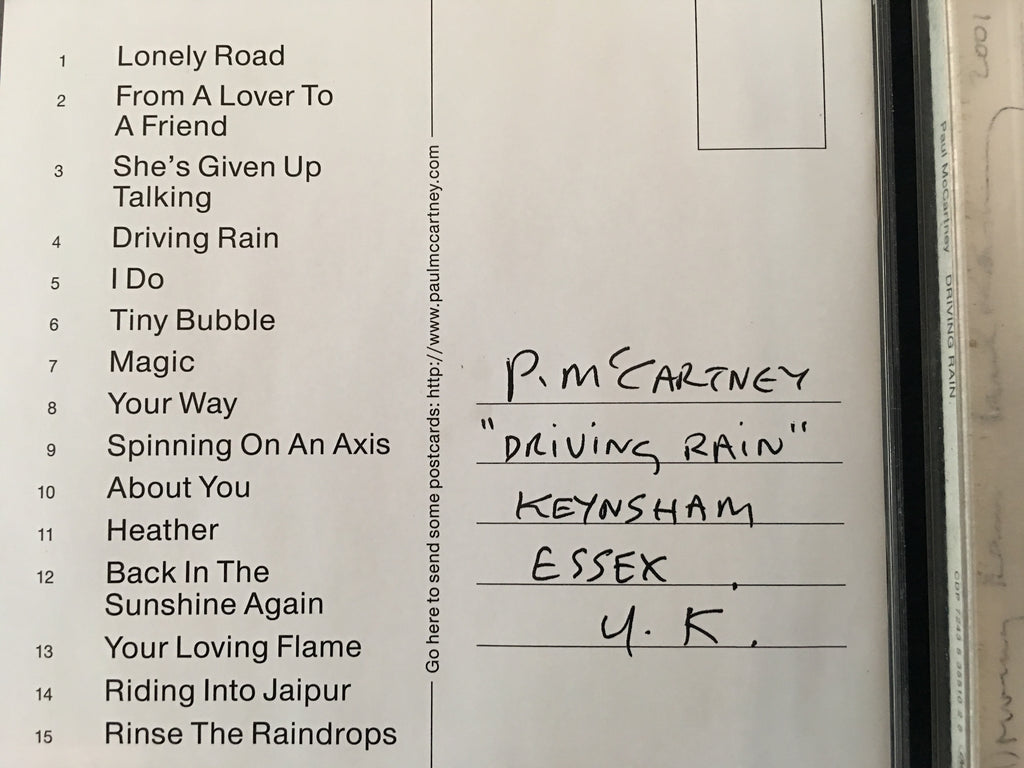 1 Lonely Road
2 From A Lover To
A Friend
3 She's Given Up
Talking
4 Driving Rain
5 I Do
6 Tiny Bubble
7 Magic
8 Your Way
9 Spinning On An Axis
10 About You
11 Heather
12 Back In The
Sunshine Again
13 Your Loving Flame
14 Riding Into Jaipur
15 Rinse The Raindrops
Go here to send some postcards: http://www.paulmccartney.com
P. McCARTNEY
"DRIVING RAIN"
KEYNSHAM
ESSEX.
U.K.
Paul McCartney DRIVING RAIN.
2001